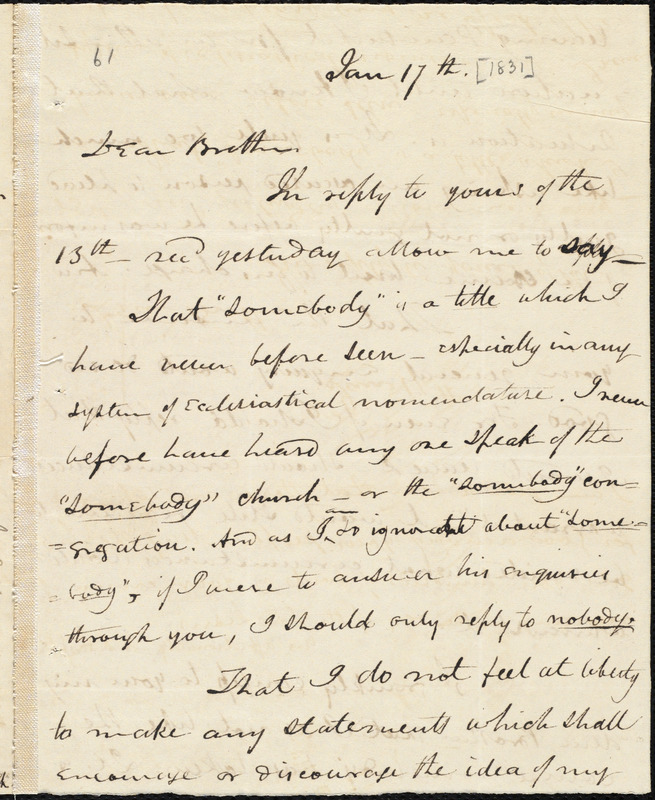 61
Jan 17th. [1831]
Dear Brother
In reply to yours of the
13th - recd yesterday allow me to say -
That "somebody" is a title which I
have never before seen - especially in any
system of Ecclesiastical nomenclature. I never
before have heard any one speak of the
"somebody" church - or the "somebody" con=
=gregation. And as I am so ignorant about "some=
=body", if I were to answer his enquiries
through you, I should only reply to nobody.
That I do not feel at liberty
to make any statements which shall
encourage or discourage the idea of my